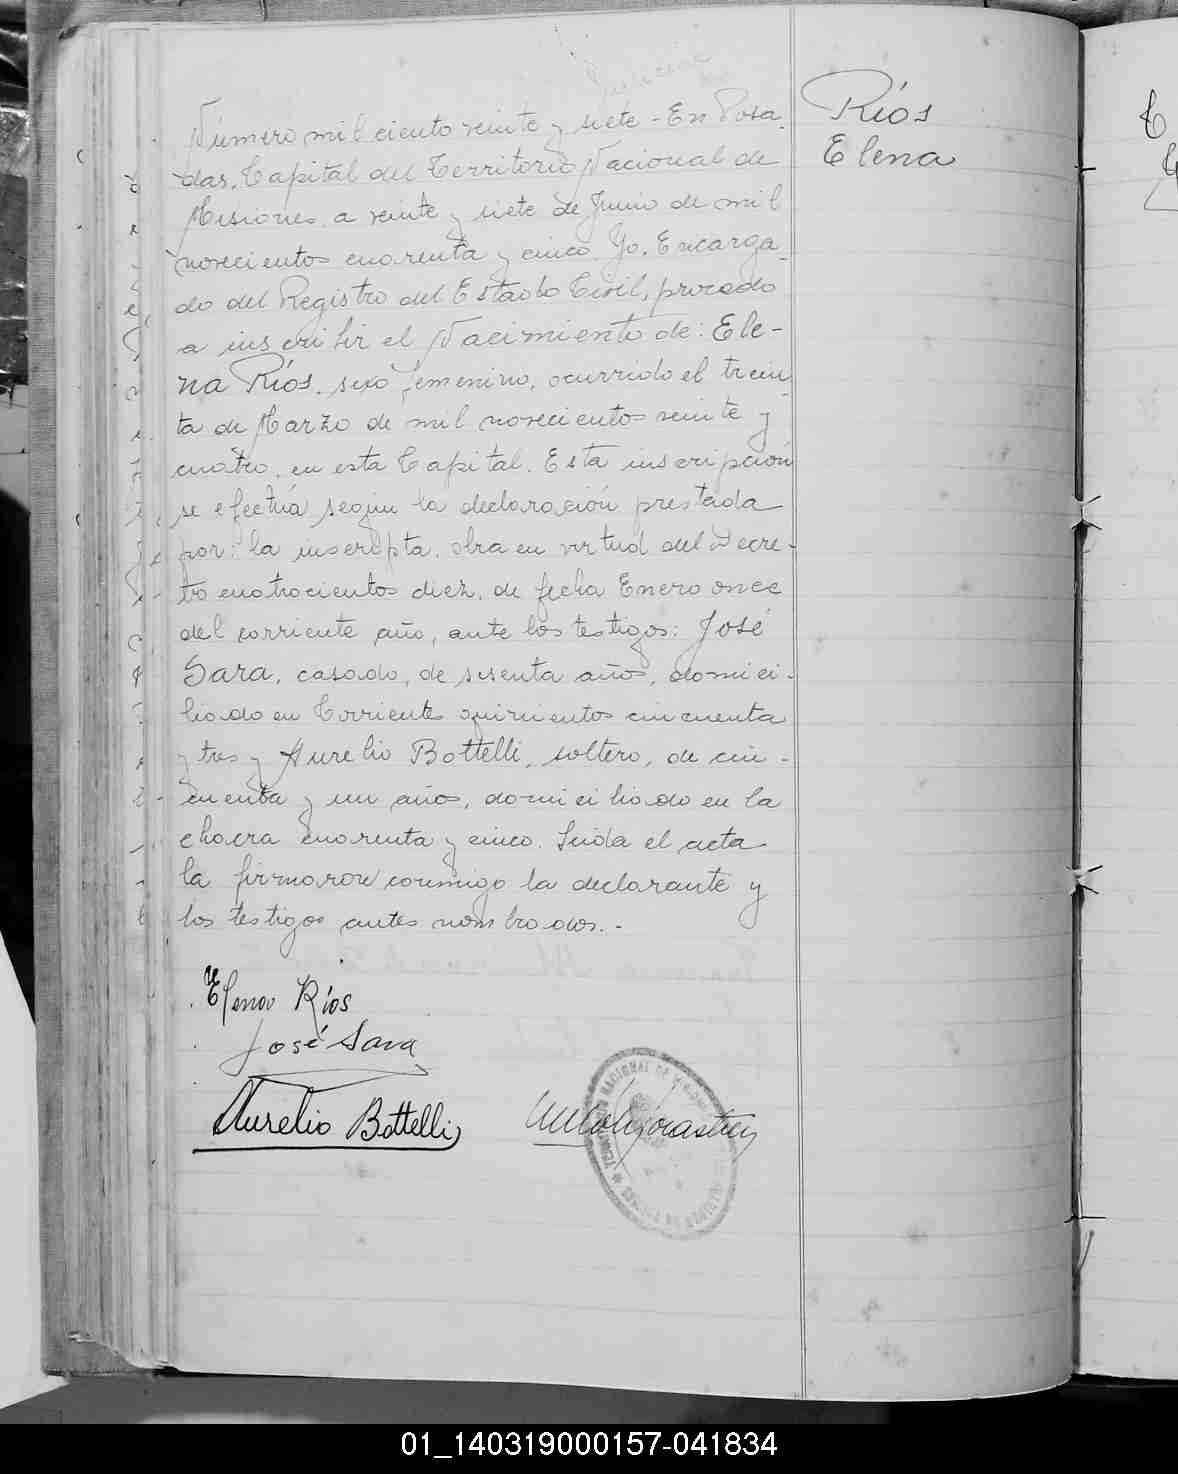 Ríos
Elena
Número mil ciento veinte y siete - En Posa-
das, Capital del Territorio Nacional de
Misiones, a veinte y siete de Junio de mil
novecientos cuarenta y cinco. Yo, Encarga-
do del Registro del Estado Civil, procedo
a inscribir el Nacimiento de: Ele-
na Ríos, sexo femenino, ocurrido el trein-
ta de Marzo de mil novecientos veinte y
cuatro, en esta Capital. Esta inscripción
se efectúa según la declaración prestada
por: la inscripta, obra en virtud del Decre-
to cuatrocientos diez, de fecha Enero once
del corriente año, ante los testigos: José
Sara, casado, de sesenta años, domici-
liado en Corrientes quinientos cincuenta
y tres y Aurelio Bottelli, soltero, de cin-
cuenta y un años, domiciliado en la
chacra cuarenta y cinco. Leída el acta
la firmaron conmigo la declarante y
los testigos antes nombrados.-
Elena Ríos
José Sara
Aurelio Bottelli
TERRITORIO NACIONAL DE MISIONES
01_140319000157-041834